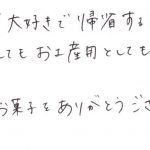 大好きで帰省する
してもお土産用としても
お菓子をありがとうござ